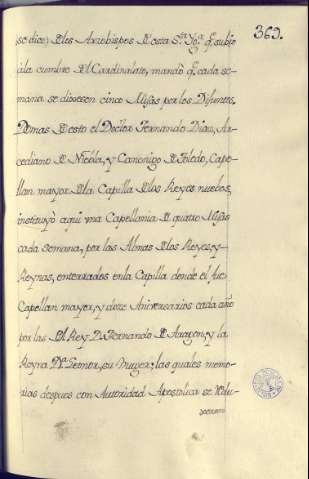 363.
se dice) Delos Arzobispos de esta S.ta Ygl.a q. subio
àla cumbre del Cardinalato, mandò q. cada se-
mana se dixesen cinco Misas por los Difuntos.
Demas de esto el Doctor Fernando Dias, Ar-
cediano de Niebla, y Canonigo de Toledo, Cape-
llan mayor dela Capilla delos Reyes nuebos,
instituyò aqui vna Capellania de quatro Misas
cada Semana, por las Almas delos Reyes, y
Reynas, enterrados enla Capilla donde el fue
Capellan mayor, y doze Aniversarios cada año
por las del Rey D. Fernando de Aragon, y la
Reyna D.a Leonor, su Muger; las quales memo-
rias despues con Autoridad Apostolica se redu-